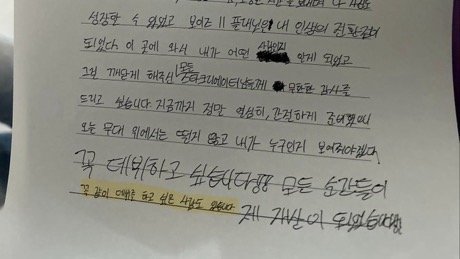 성장할 수 있었고 보이즈 II 플래닛은 내 인생의 전환점이
되었다. 이 곳에 와서 내가 어떤 사람인지 알게 되었고
그걸 깨닫게 해주신 모든 스타크리에이터님들께 무한한 감사를
드리고 싶습니다. 지금까지 정말 열심히, 간절하게 준비했으니
오늘 무대 위에서는 떨지 않고 내가 누구인지 보여줘야겠다.
꼭 데뷔하고 싶습니다 모든 순간들이
꼭 같이 데뷔를 하고 싶은 사람도 있습니다. 제 자산이 되었습니다